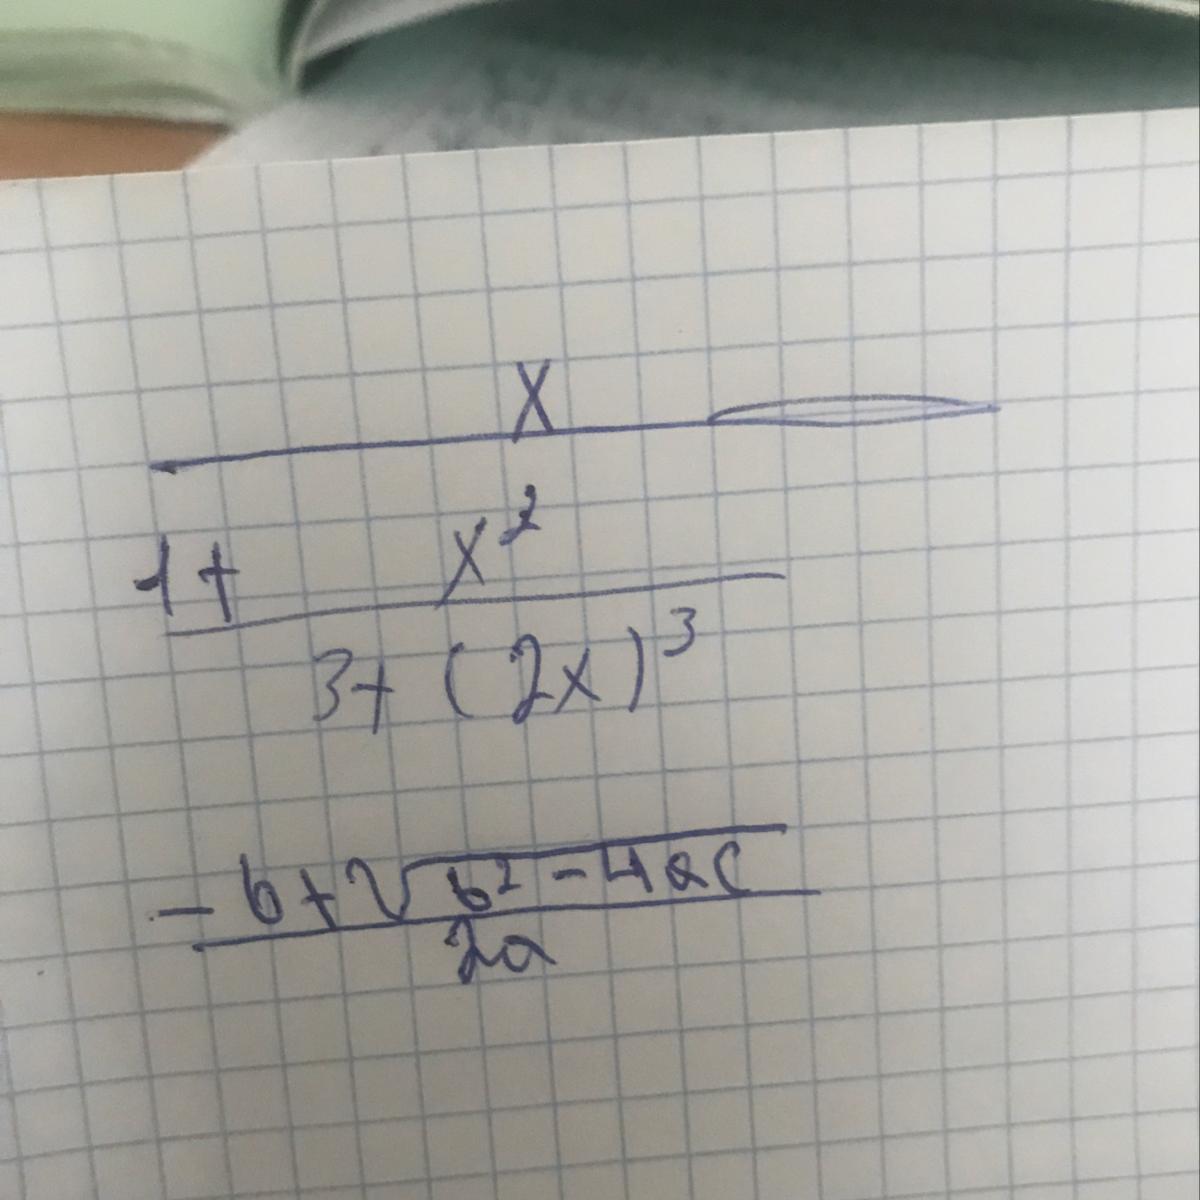 x
1+ x²
3+ (2x)³
-b+√b²-4ac
2a